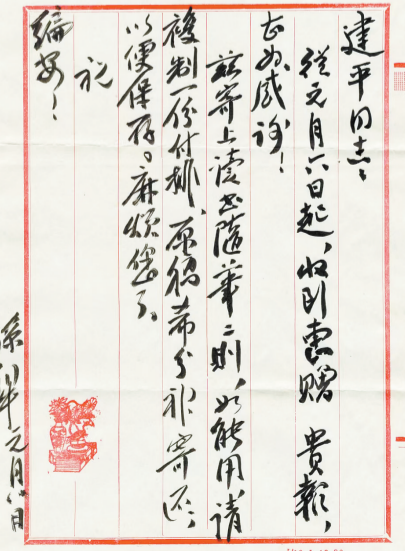 建平同志：
从元月六日起，收到惠赠 贵报，
甚为感谢！
兹寄上读书随笔二则，如能用，请
复制一份付排，原稿希分神寄还，
以便保存。麻烦您了。
祝
编安！
孙犁 元月八日